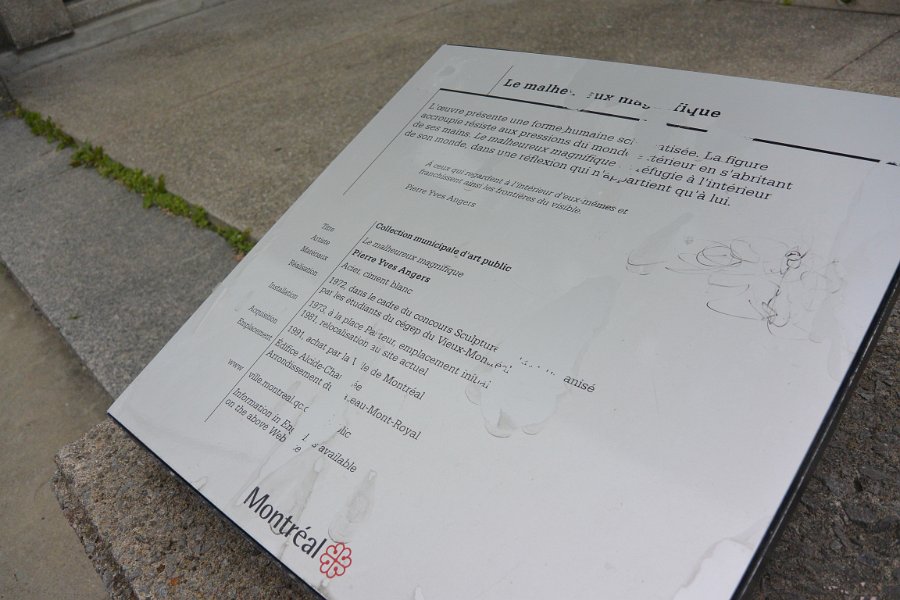 Le malheureux magnifique
L'œuvre présente une forme humaine schématisée. La figure
accroupie résiste aux pressions du monde extérieur en s'abritant
de ses mains. Le malheureux magnifique se réfugie à l'intérieur
de son monde, dans une réflexion qui n'appartient qu'à lui.
À ceux qui regardent à l'intérieur d'eux-mêmes et
franchissent ainsi les frontières du visible.
Pierre Yves Angers
Collection municipale d'art public
Titre Le malheureux magnifique
Artiste Pierre Yves Angers
Matériaux Acier, ciment blanc
Réalisation 1972, dans le cadre du concours Sculpture organisé
par les étudiants du cégep du Vieux-Montréal
Installation 1973, à la place Pasteur, emplacement initial
1981, relocalisation au site actuel
Acquisition 1991, achat par la Ville de Montréal
Emplacement Édifice Alcide-Chaussé
Arrondissement du Plateau-Mont-Royal
www ville.montreal.qc.ca
Information in English is available
on the above Web site
Montréal